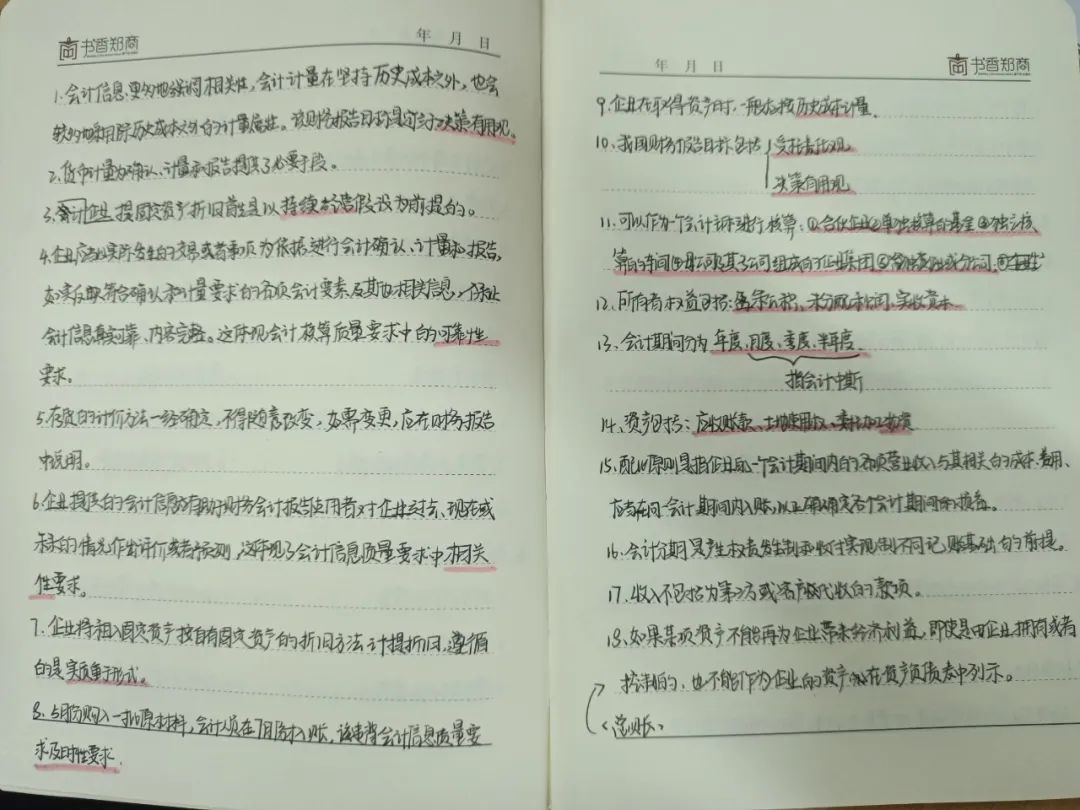 书香郑商
年 月 日
1.会计信息更多地强调相关性,会计计量在坚持历史成本之外,也会
较多地采用除历史成本之外的计量属性。该财务报告目标是定于决策有用观。
2.货币计量为确认、计量和报告提供了必要手段。
3.会计企业提固定资产折旧首先是以持续经营假设为前提的。
4.企业应当以实际发生的交易或者事项为依据进行会计确认、计量和报告,
如实反映符合确认和计量要求的各项会计要素及其他相关信息,保证
会计信息真实可靠、内容完整。这体现会计核算质量要求中的可靠性
要求。
5.存货的计价方法一经确定,不得随意改变,如需变更,应在财务报告
中说明。
6.企业提供的会计信息应有助于财务会计报告使用者对企业过去、现在或
未来的情况作出评价或者预测,这体现了会计信息质量要求中相关
性要求。
7.企业将租入固定资产按自有固定资产的折旧方法计提折旧,遵循
的是实质重于形式。
8.5月份购入一批原材料,会计人员在7月份才入账,该违背会计信息质量要
求及时性要求.
年 月 日
书香郑商
9.企业在取得资产时,一般应按历史成本计量。
10.我国财务报告目标包括
受托责任观
决策有用观
11.可以作为一个会计主体进行核算:①合伙企业②单独核算的基金③独立核
算的车间④母公司及其子公司组成的企业集团⑤
12.所有者权益包括:盈余公积、未分配利润、实收资本
13.会计期间分为年度、月度、季度、半年度.
指会计中期
14.资产包括:应收账款、土地使用权、委托加工物资
15.配比原则是指企业在一个会计期间内的各项营业收入与其相关的成本、费用、
应当在同一会计期间内入账,以正确确定各个会计期间的损益。
16.会计分期是产生权责发生制和收付实现制不同记账基础的前提。
17.收入不包括为第三方或客户代收的款项。
18.如果某项资产不能再为企业带来经济利益,即使是由企业拥有或者
控制的,也不能作为企业的资产在资产负债表中列示。
<总账>